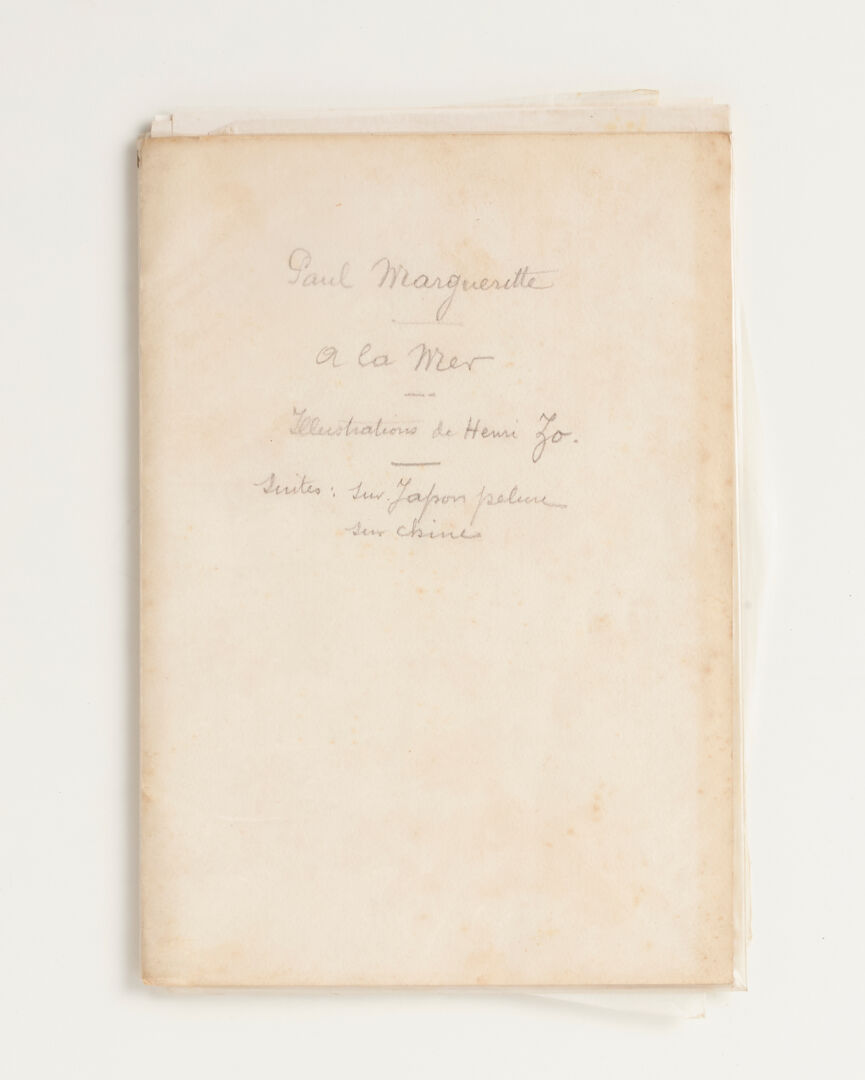 Paul Margueritte
A la Mer
Illustrations de Henri Zo.
Suites: sur Japon pelure
sur chine